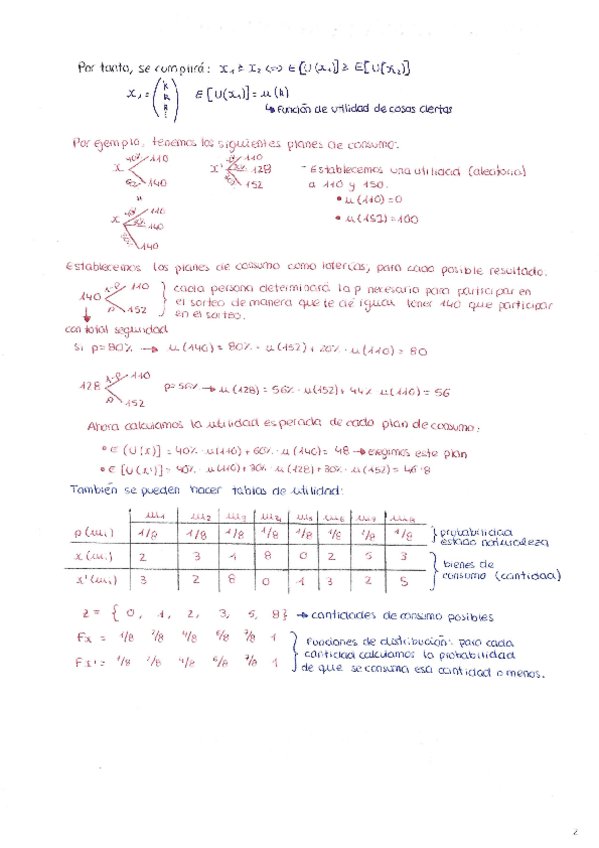 Por tanto, se cumplirá: x₁ ≥ x₂ <=> E[U(x₁)] ≥ E[U(x₂)]
x₁ = (k k k ⋮) E[U(x₁)] = u(k)
↳ Función de utilidad de cosas ciertas
Por ejemplo, tenemos los siguientes planes de consumo:
x 40% 110 x' 40% 110 - Establecemos una utilidad (aleatoria)
30% 128 a 110 y 150.
60% 140 152 • u(110)=0
x 40% 110 • u(152)=100
140
140
Establecemos los planes de consumo como loterías, para cada posible resultado.
140 1-p 110 cada persona determinará la p necesaria para participar en
p 152 el sorteo de manera que te dé igual tener 140 que participar
en el sorteo.
con total seguridad
Si p=80% → u(140) = 80% · u(152) + 20% · u(110) = 80
128 1-p 110 p=56% → u(128) = 56% · u(152) + 44% u(110) = 56
p 152
Ahora calculamos la utilidad esperada de cada plan de consumo:
• E(U(x)] = 40% · u(110) + 60% · u(140) = 48 → elegimos este plan
• E[U(x')] = 40% · u(110) + 30% · u(128) + 30% · u(152) = 46'8
También se pueden hacer tablas de utilidad:
w₁ w₂ w₃ w₄ w₅ w₆ w₇ w₈
p(wᵢ) 1/8 1/8 1/8 1/8 1/8 1/8 1/8 1/8 probabilidad estado naturaleza
x(wᵢ) 2 3 1 8 0 2 5 3 bienes de
x'(wᵢ) 3 2 8 0 1 3 2 5 consumo (cantidad)
z = {0, 1, 2, 3, 5, 8} → cantidades de consumo posibles
Fx = 1/8 2/8 4/8 6/8 7/8 1 Funciones de distribución: para cada
Fx' = 1/8 2/8 4/8 6/8 7/8 1 cantidad calculamos la probabilidad
de que se consuma esa cantidad o menos.
2